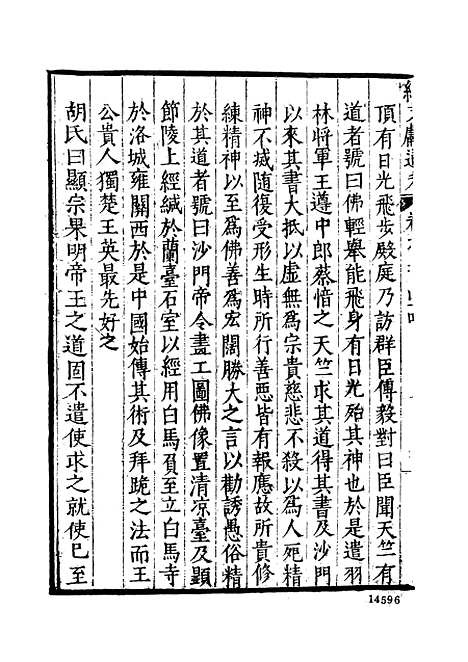 頂有日光飛步殿庭乃訪群臣傅毅對曰臣聞天竺有
道者號曰佛輕舉能飛身有日光殆其神也於是遣羽
林將軍王遵中郎蔡愔之天竺求其道得其書及沙門
以來其書大抵以虛無爲宗貴慈悲不殺以爲人死精
神不滅隨復受形生時所行善惡皆有報應故所貴修
練精神以至爲佛善爲宏闊勝大之言以勸誘愚俗精
於其道者號曰沙門帝令畫工圖佛像置清凉臺及顯
節陵上經緘於蘭臺石室以經用白馬負至立白馬寺
於洛城雍關西於是中國始傳其術及拜跪之法而王
公貴人獨楚王英最先好之
胡氏曰顯宗果明帝王之道固不遣使求之就使已至
14596